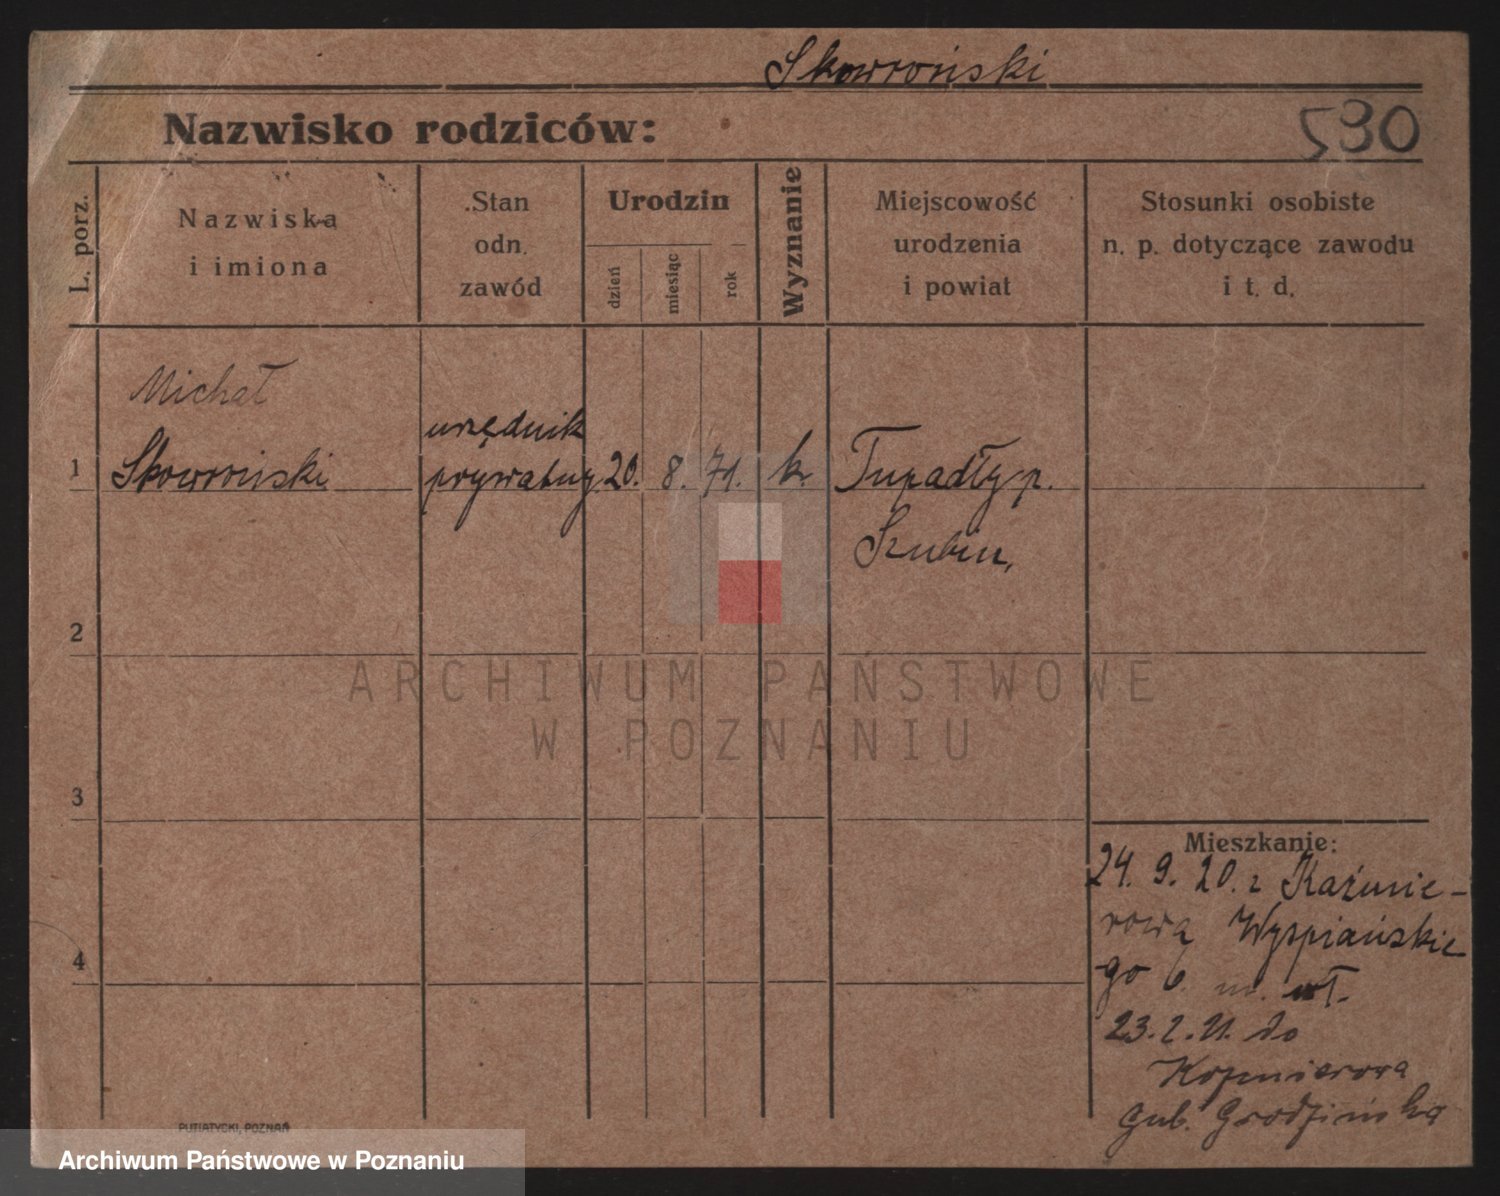 Skowroński
Nazwisko rodziców:
530
L. porz.
Nazwiska
i imiona
Stan
odn.
zawód
Urodzin
dzień
miesiąc
rok
Wyznanie
Miejscowość
urodzenia
i powiat
Stosunki osobiste
n. p. dotyczące zawodu
i t. d.
Michał
urzędnik
1 Skowroński prywatny 20. 8. 71. k. Tupadły p.
Szubin.
2
ARCHIWUM PAŃSTWOWE
W POZNANIU
3
Mieszkanie:
24. 9. 20. z Kaźmie-
rowa Wyspiańskie
go 6 m. wł.
4
23. 2. 21. do
gub. Grodzieńska
PUTIATYCKI, POZNAŃ
Archiwum Państwowe w Poznaniu